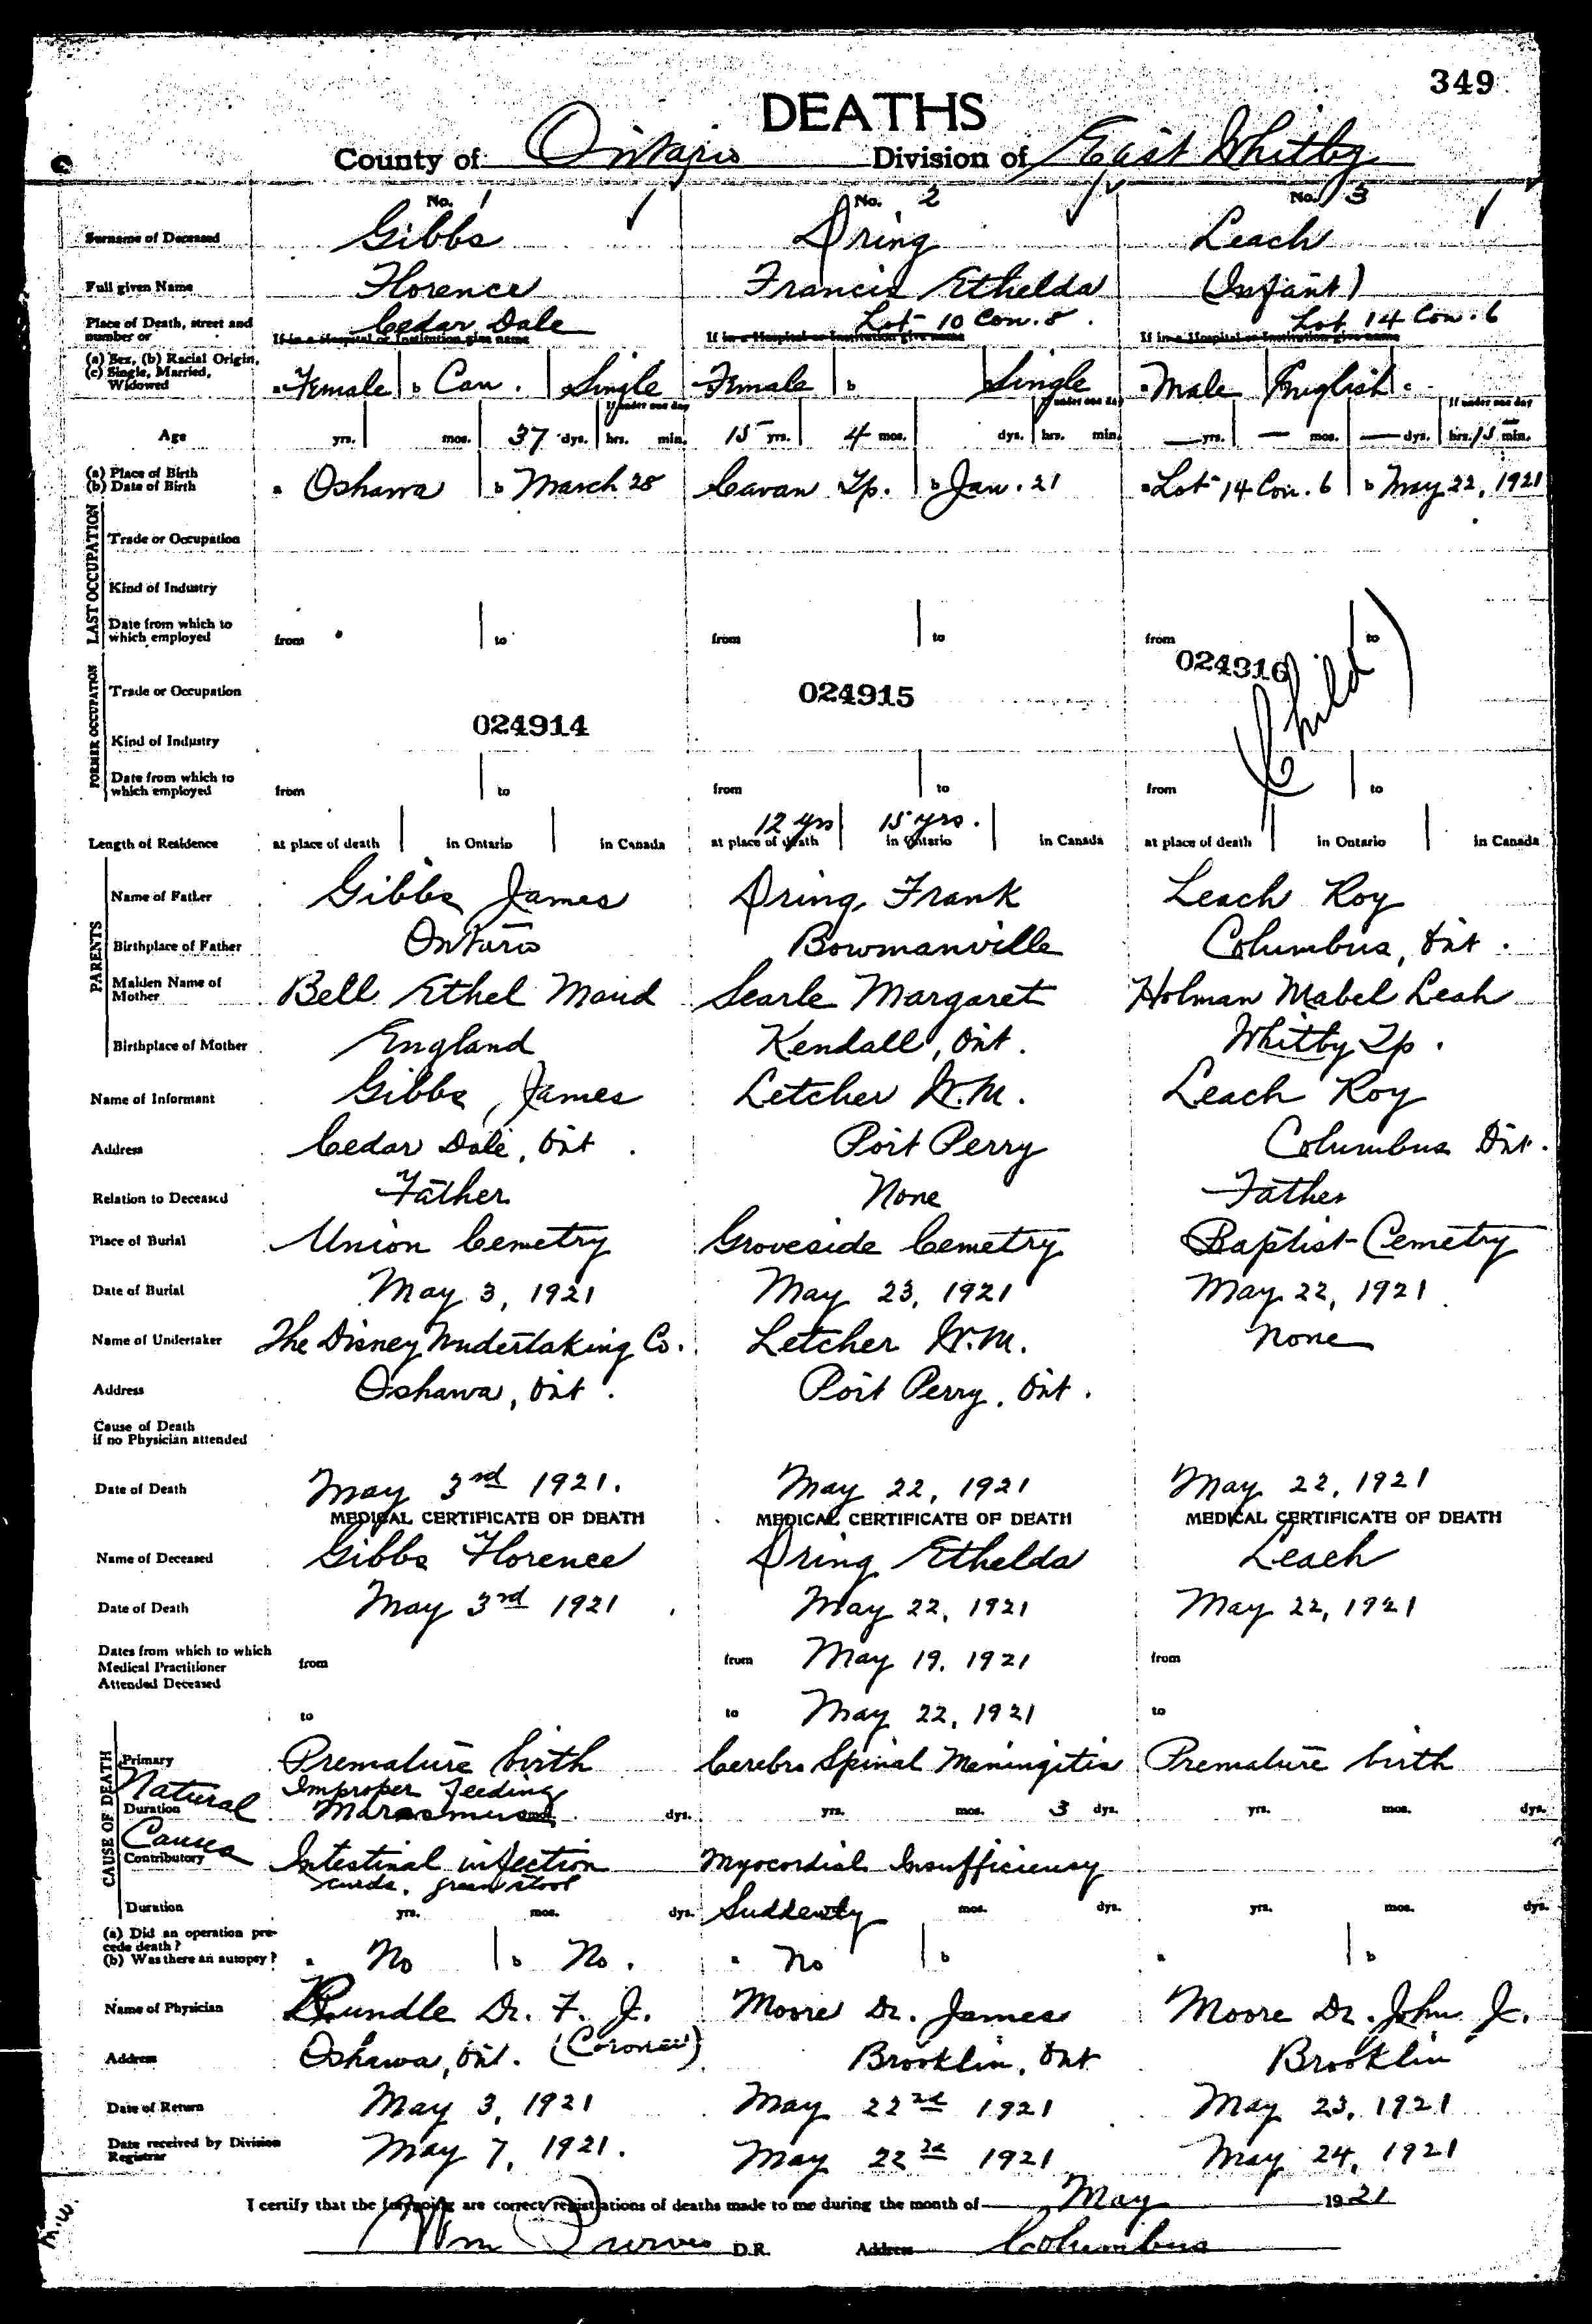 349
DEATHS
County of Ontario Division of East Whitby
No. 1 No. 2 No. 3
Surname of Deceased Gibbs Dring Leach
Full given Name Florence Francis Ethelda (Infant)
Place of Death, street and number or Cedar Dale Lot 10 Con. 8. Lot 14 Con. 6
If in a Hospital or Institution give name If in a Hospital or Institution give name If in a Hospital or Institution give name
(a) Sex, (b) Racial Origin, (c) Single, Married, Widowed a Female b Can. c Single a Female b Single a Male English c
If under one day If under one day If under one day
Age yrs. mos. 37 dys. hrs. min. 15 yrs. 4 mos. dys. hrs. min. — yrs. — mos. — dys. hrs. 15 min.
(a) Place of Birth (b) Date of Birth a Oshawa b March 28 Cavan Tp. b Jan. 21 a Lot 14 Con. 6 b May 22, 1921
LAST OCCUPATION
Trade or Occupation
Kind of Industry
Date from which to which employed from to from to from to
FORMER OCCUPATION
Trade or Occupation 024914 024915 024916 (Child)
Kind of Industry
Date from which to which employed from to from to from to
12 yrs 15 yrs.
Length of Residence at place of death in Ontario in Canada at place of death in Ontario in Canada at place of death in Ontario in Canada
PARENTS
Name of Father Gibbs James Dring Frank Leach Roy
Birthplace of Father Ontario Bowmanville Columbus, Ont.
Maiden Name of Mother Bell Ethel Maud Searle Margaret Holman Mabel Leah
Birthplace of Mother England Kendall, Ont. Whitby Tp.
Name of Informant Gibbs, James Letcher W.M. Leach Roy
Address Cedar Dale, Ont. Port Perry Columbus Ont.
Relation to Deceased Father None Father
Place of Burial Union Cemetry Groveside Cemetry Baptist Cemetry
Date of Burial May 3, 1921 May 23, 1921 May 22, 1921
Name of Undertaker The Disney Undertaking Co. Letcher W.M. None
Address Oshawa, Ont. Port Perry, Ont.
Cause of Death if no Physician attended
Date of Death May 3rd 1921. May 22, 1921 May 22, 1921
MEDICAL CERTIFICATE OF DEATH MEDICAL CERTIFICATE OF DEATH MEDICAL CERTIFICATE OF DEATH
Name of Deceased Gibbs Florence Dring Ethelda Leach
Date of Death May 3rd 1921 May 22, 1921 May 22, 1921
Dates from which to which Medical Practitioner Attended Deceased from from May 19, 1921 from
to to May 22, 1921 to
CAUSE OF DEATH
Natural Causes
Primary Premature birth Cerebro Spinal Meningitis Premature birth
Improper Feeding
Duration Marasmus dys. yrs. mos. 3 dys. yrs. mos. dys.
Contributory Intestinal infection Myocordial Insufficiency
curds, green stool
Duration yrs. mos. dys. Suddenly mos. dys. yrs. mos. dys.
(a) Did an operation precede death? (b) Was there an autopsy? a No b No. a No b a b
Name of Physician Rundle Dr. F. J. Moore Dr. James Moore Dr. John J.
Address Oshawa, Ont. (Coroner) Brooklin, Ont Brooklin
Date of Return May 3, 1921 May 22nd 1921 May 23, 1921
Date received by Division Registrar May 7, 1921. May 22nd 1921 May 24, 1921
I certify that the foregoing are correct registrations of deaths made to me during the month of May 1921
Wm Purves D.R. Address Columbus
M.W.